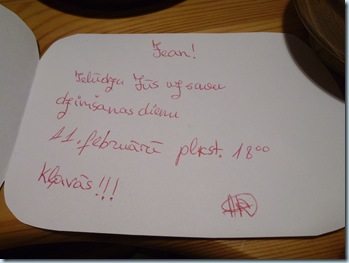 Jean!
Ielūdzu Jūs uz savu
dzimšanas dienu
11. februārā plkst. 18⁰⁰
Kļavās!!!